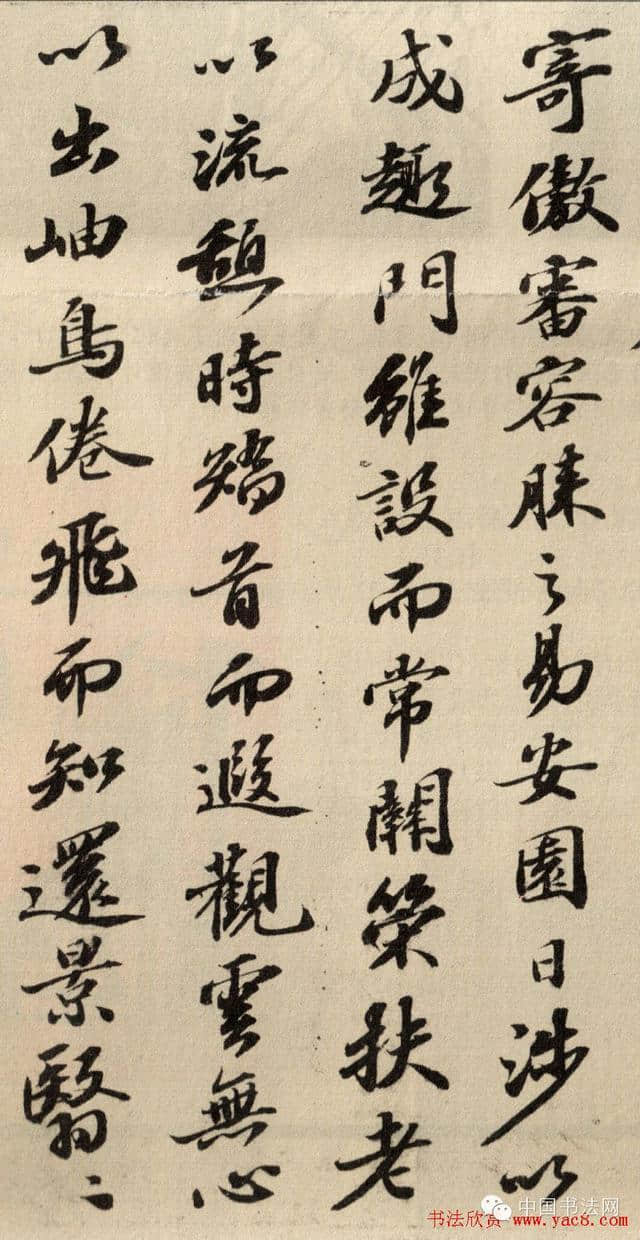 寄傲審容膝之易安園日涉以
成趣門雖設而常關策扶老
以流憩時矯首而遐觀雲無心
以出岫鳥倦飛而知還景翳〻
中国书法网
书法欣赏 www.yac8.com